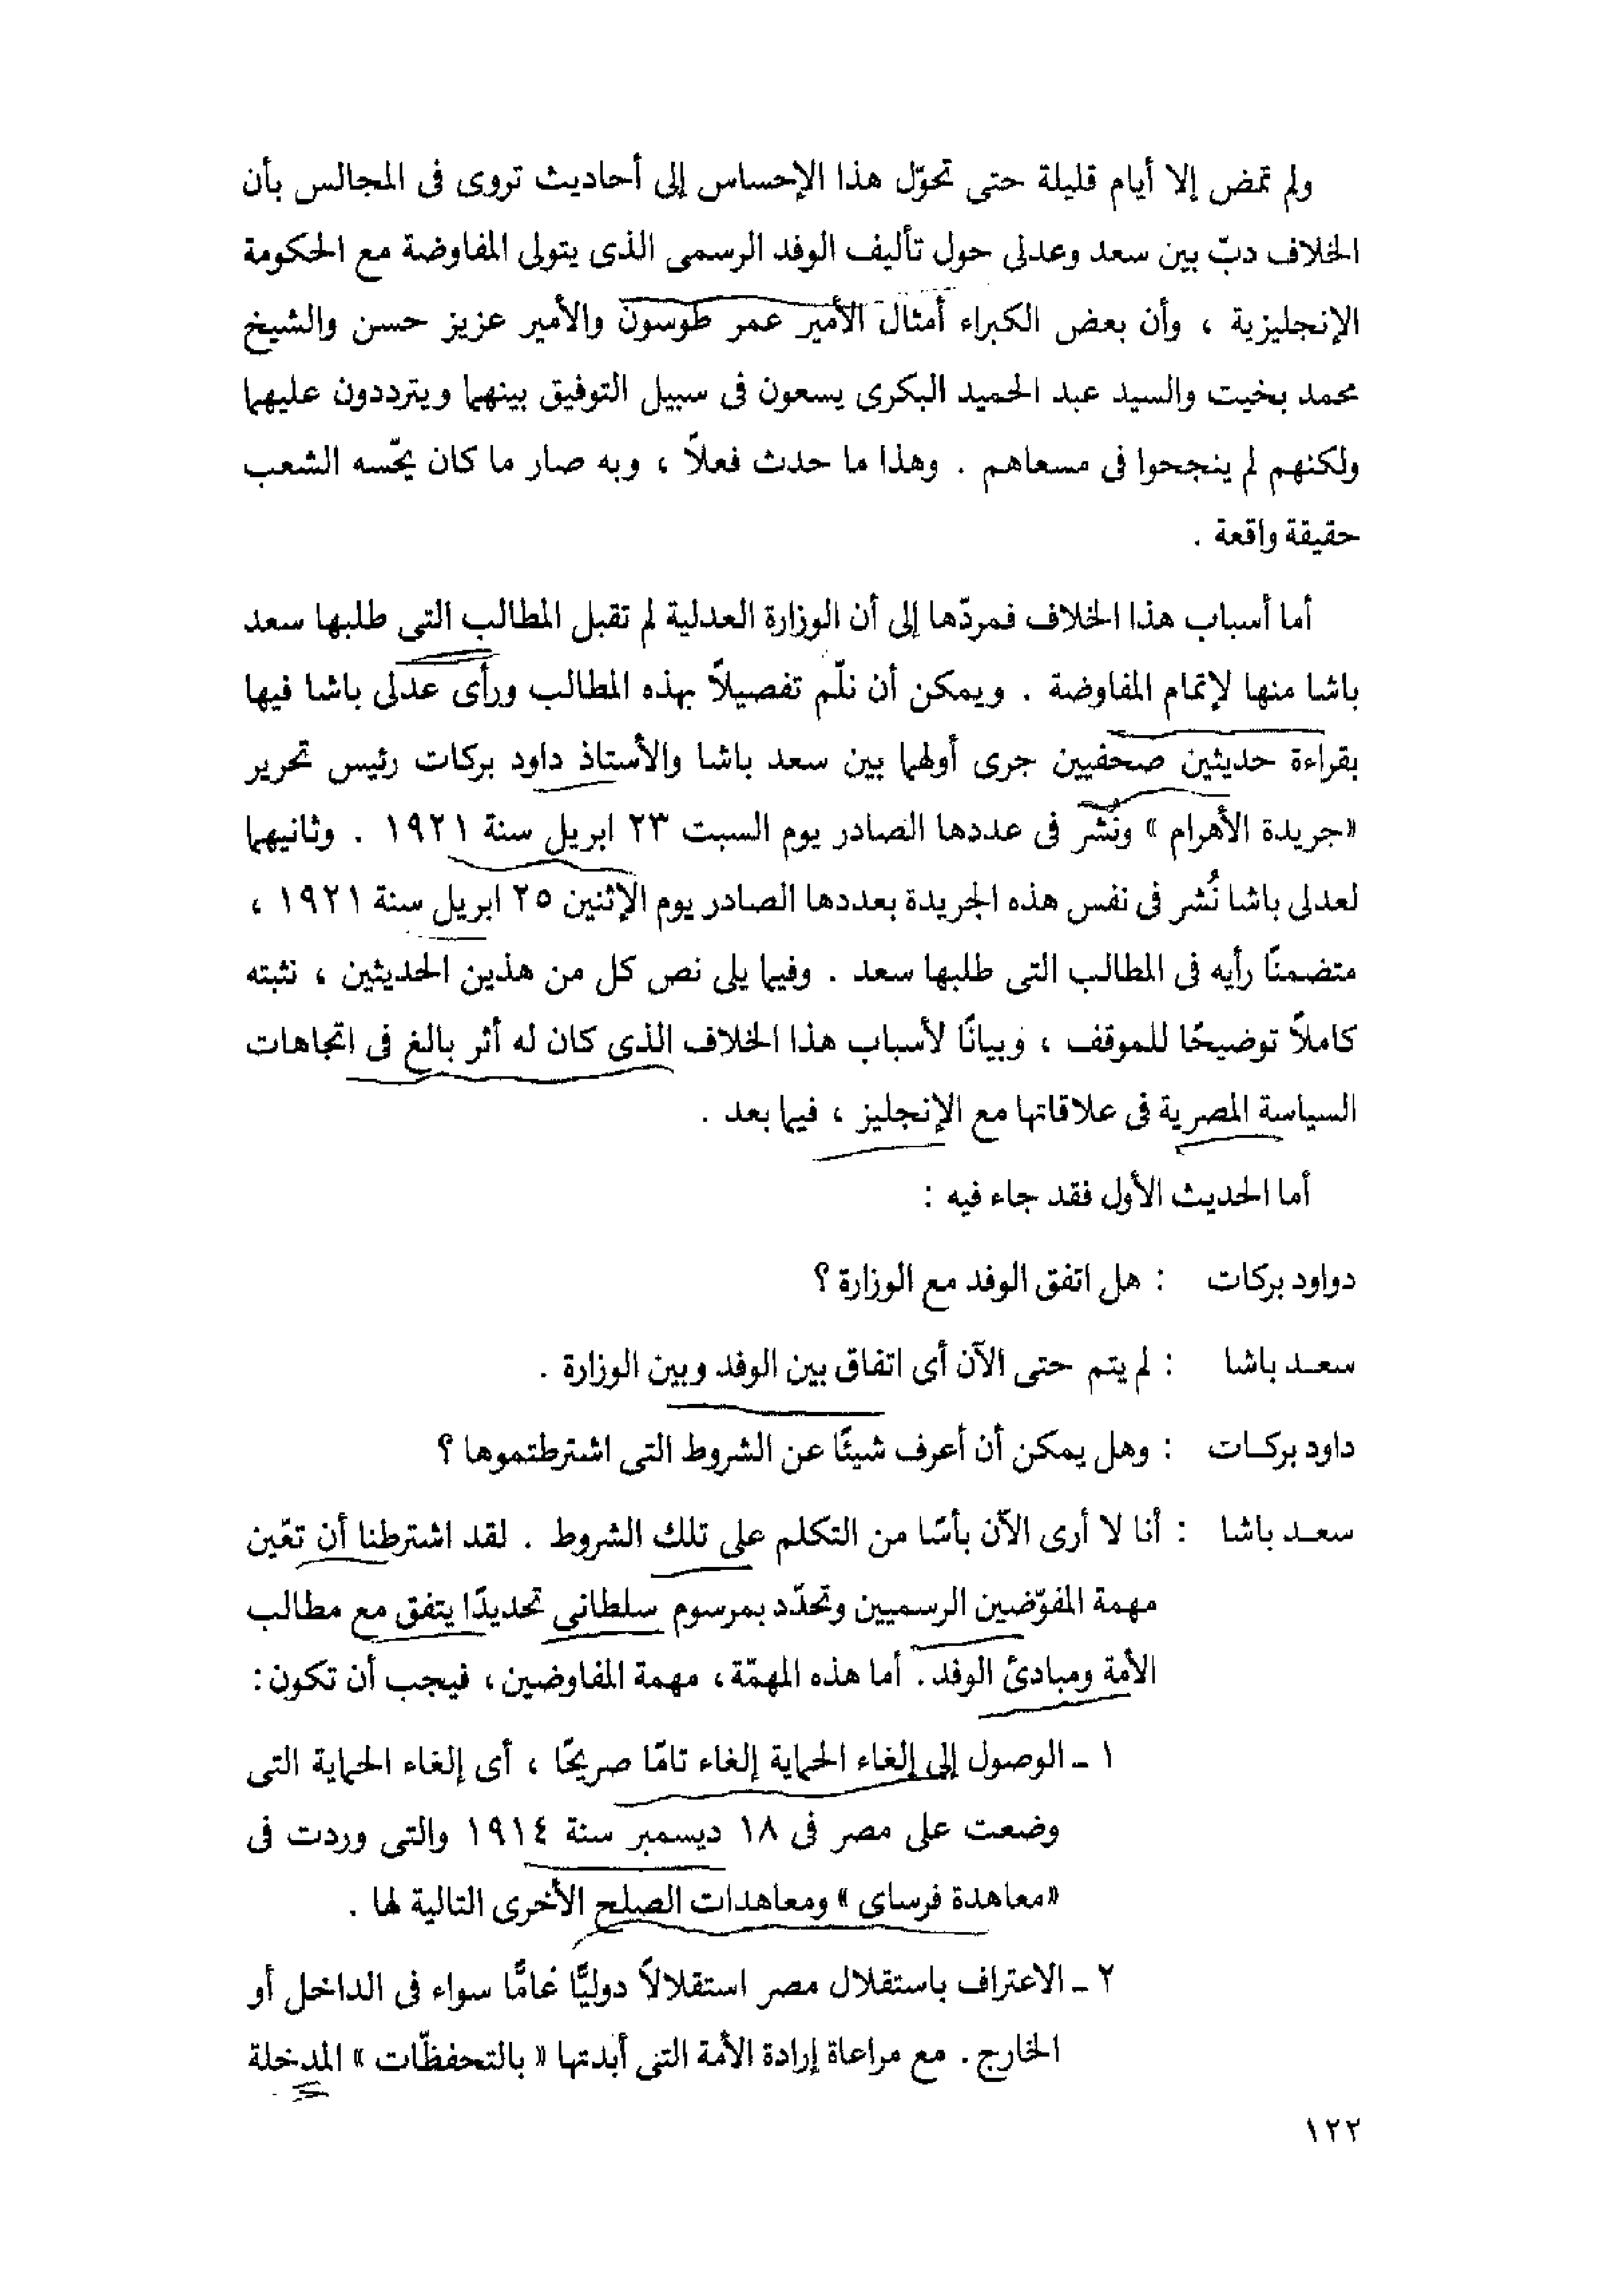 ولم تمض إلا أيام قليلة حتى تحوّل هذا الإحساس إلى أحاديث تروى فى المجالس بأن
الخلاف دبّ بين سعد وعدلى حول تأليف الوفد الرسمى الذى يتولى المفاوضة مع الحكومة
الإنجليزية ، وأن بعض الكبراء أمثال الأمير عمر طوسون والأمير عزيز حسن والشيخ
محمد بخيت والسيد عبد الحميد البكرى يسعون فى سبيل التوفيق بينهما ويترددون عليهما
ولكنهم لم ينجحوا فى مسعاهم . وهذا ما حدث فعلاً ، وبه صار ما كان يحّسه الشعب
حقيقة واقعة .
أما أسباب هذا الخلاف فمردّها إلى أن الوزارة العدلية لم تقبل المطالب التى طلبها سعد
باشا منها لإتمام المفاوضة . ويمكن أن نلّم تفصيلاً بهذه المطالب ورأى عدلى باشا فيها
بقراءة حديثين صحفيين جرى أولهما بين سعد باشا والأستاذ داود بركات رئيس تحرير
«جريدة الأهرام» ونُشر فى عددها الصادر يوم السبت ٢٣ ابريل سنة ١٩٢١ . وثانيهما
لعدلى باشا نُشر فى نفس هذه الجريدة بعددها الصادر يوم الإثنين ٢٥ ابريل سنة ١٩٢١ ،
متضمنًا رأيه فى المطالب التى طلبها سعد . وفيما يلى نص كل من هذين الحديثين ، نثبته
كاملاً توضيحًا للموقف ، وبيانًا لأسباب هذا الخلاف الذى كان له أثر بالغ فى اتجاهات
السياسة المصرية فى علاقاتها مع الإنجليز ، فيما بعد .
أما الحديث الأول فقد جاء فيه :
دواود بركات : هل اتفق الوفد مع الوزارة ؟
سعـد باشا : لم يتم حتى الآن أى اتفاق بين الوفد وبين الوزارة .
داود بركـات : وهل يمكن أن أعرف شيئًا عن الشروط التى اشترطتموها ؟
سعـد باشا : أنا لا أرى الآن بأسًا من التكلم على تلك الشروط . لقد اشترطنا أن تعّين
مهمة المفوّضين الرسميين وتحدّد بمرسوم سلطانى تحديدًا يتفق مع مطالب
الأمة ومبادئ الوفد . أما هذه المهمّة ، مهمة المفاوضين ، فيجب أن تكون :
١ ـ الوصول إلى إلغاء الحماية إلغاء تامًا صريحًا ، أى إلغاء الحماية التى
وضعت على مصر فى ١٨ ديسمبر سنة ١٩١٤ والتى وردت فى
«معاهدة فرساى» ومعاهدات الصلح الأخرى التالية لها .
٢ ـ الاعتراف باستقلال مصر استقلالاً دوليًّا عامًّا سواء فى الداخل أو
الخارج . مع مراعاة إرادة الأمة التى أبدتها «بالتحفظّات» المدخلة
١٢٢